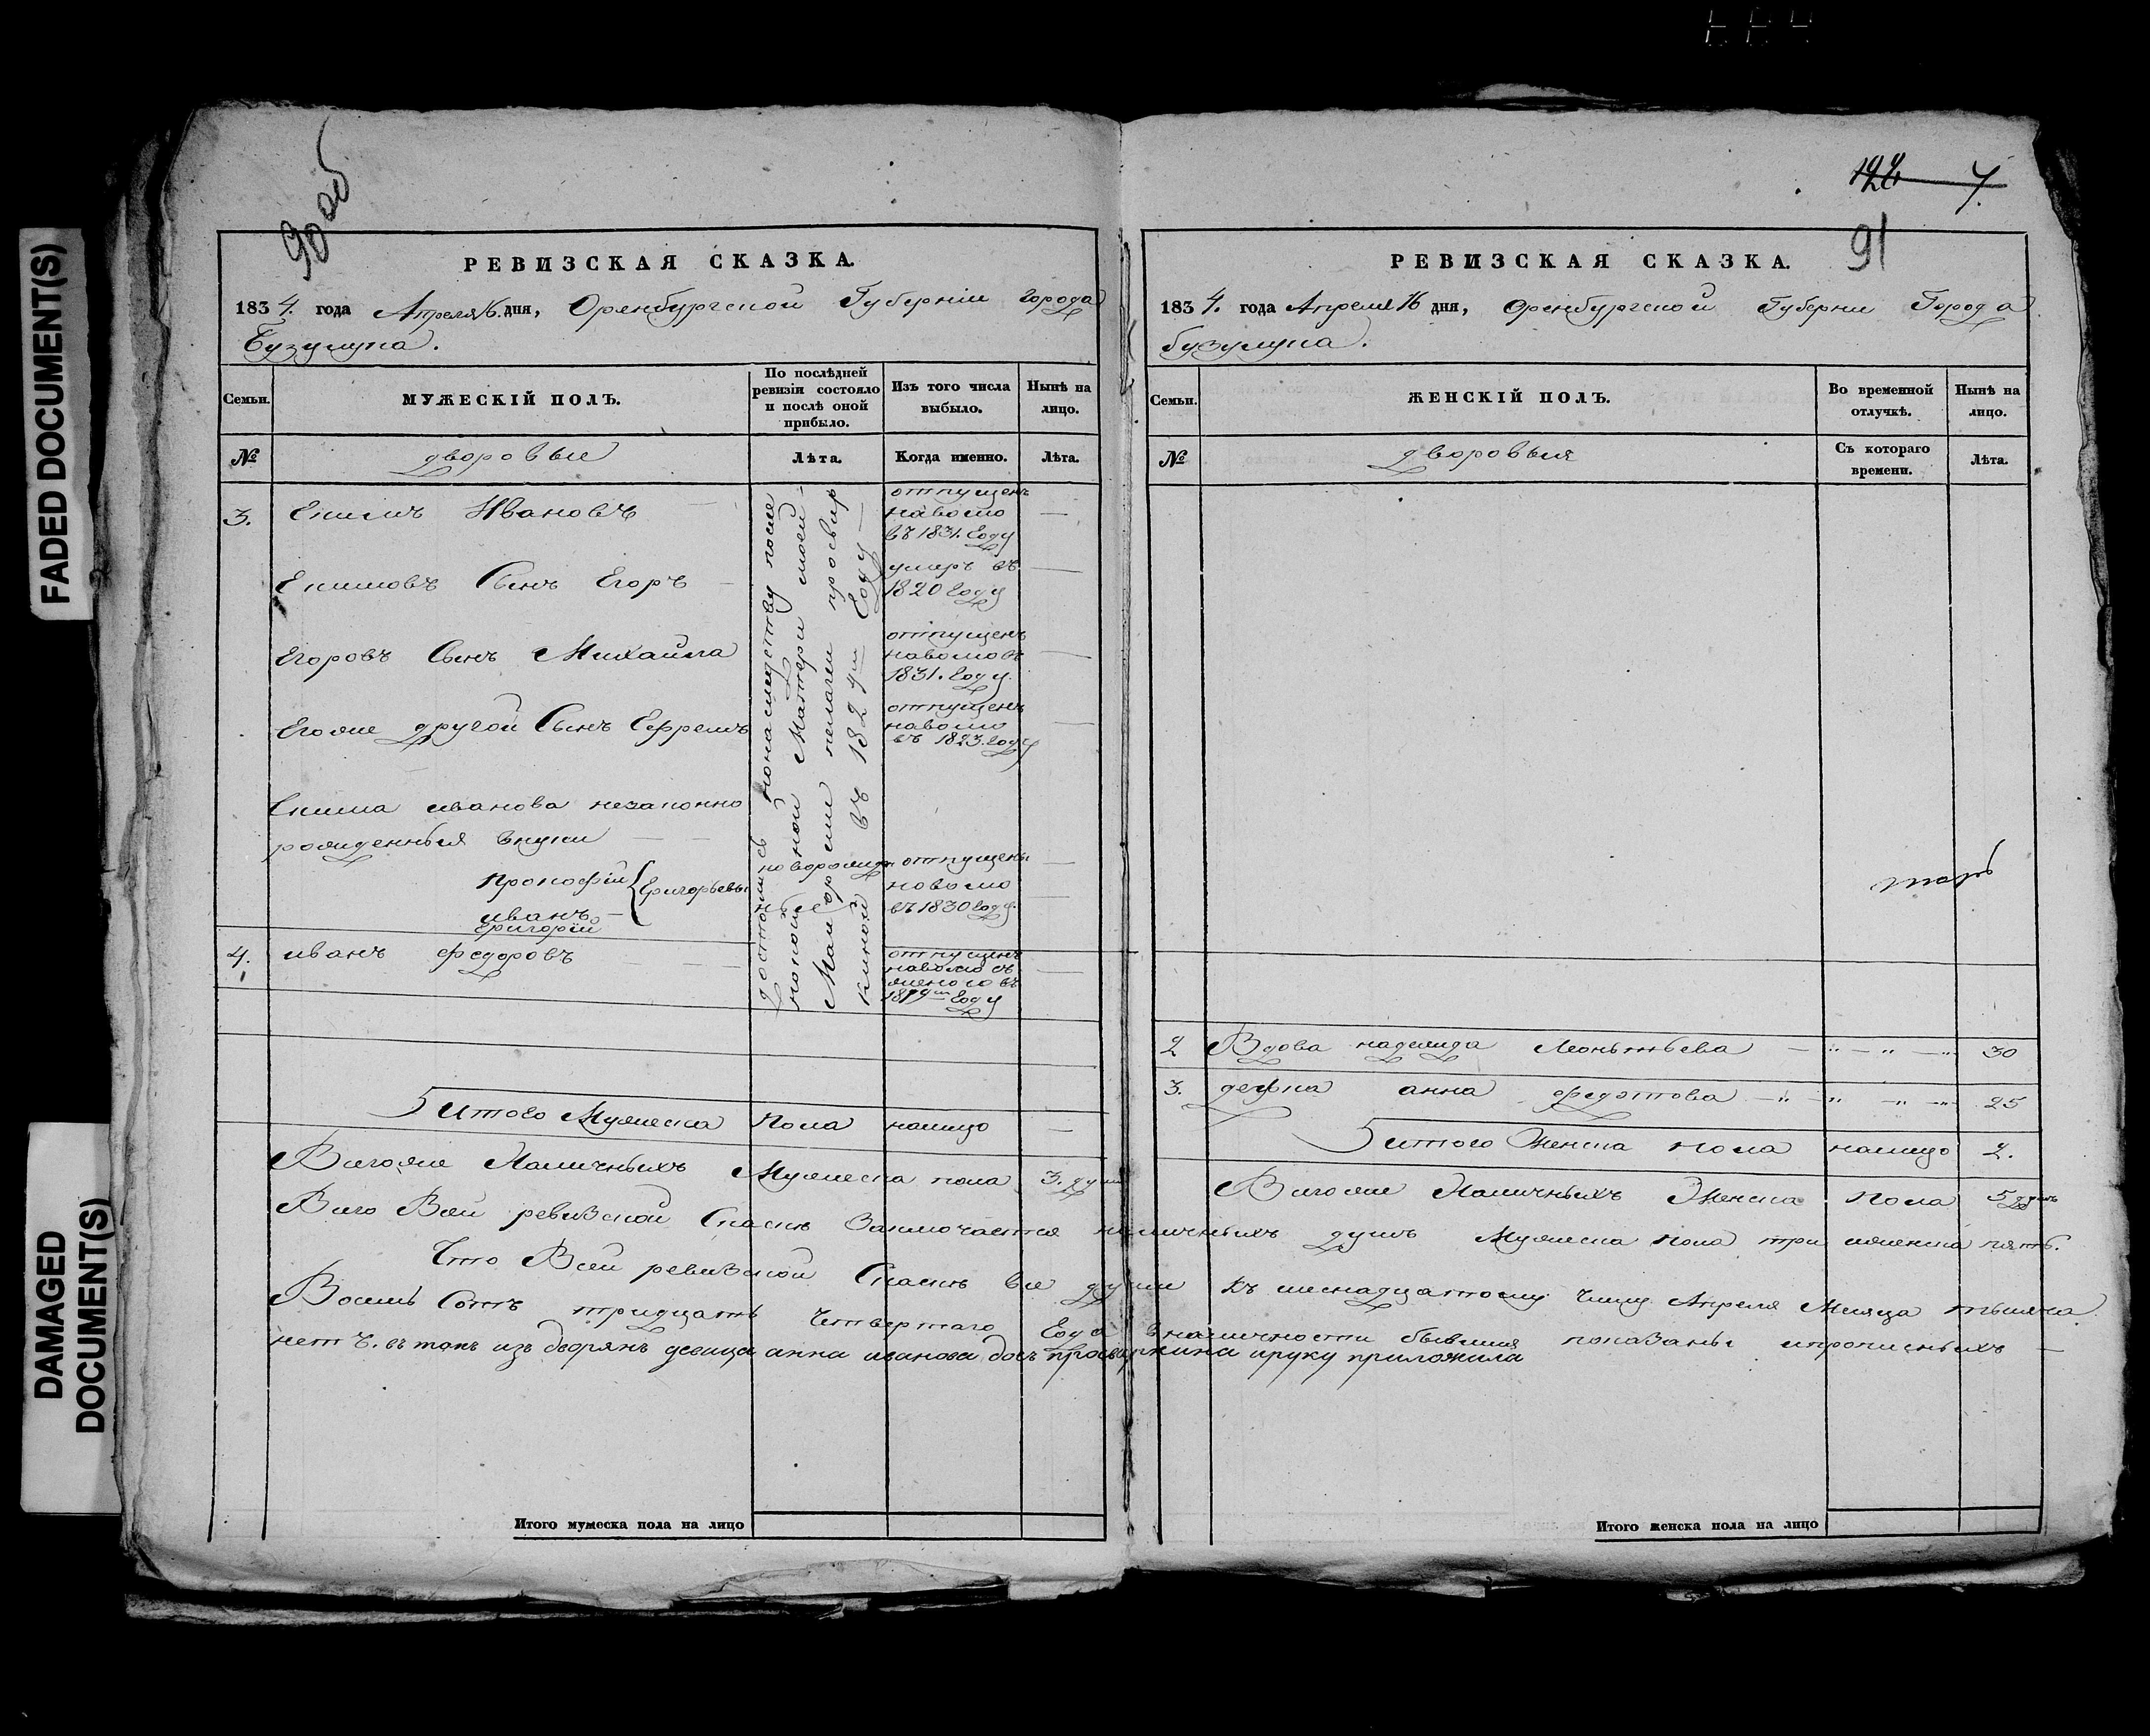 FADED DOCUMENT(S)
DAMAGED
DOCUMENT(S)
90 об
РЕВИЗСКАЯ СКАЗКА.
1834. года Апреля 16. дня, Оренбургской Губернiи города
Бузулука.
Семьи.
МУЖЕСКIЙ ПОЛЪ.
По послѣдней
ревизiи состояло
и послѣ оной
прибыло.
Изъ того числа
выбыло.
Нынѣ на
лицо.
№
дворовые
Лѣта.
Когда именно.
Лѣта.
3.
Екимъ Ивановъ
отпущенъ
наволю
въ 1831. Году
Екимовъ Сынъ Егоръ
умеръ въ
1820 Году
Егоровъ Сынъ Михайла
отпущенъ
наволю въ
1831. Году.
Егоже другой Сынъ Ефремъ
отпущенъ
наволю
въ 1823. году
Екима иванова незаконно
рожденныя внуки
Прокофiй
иванъ
Григорiй
Григорьевы
новорожден
ные
отпущены
наволю
въ 1830 Году.
4.
иванъ федоровъ
отпущенъ
наволю съ
женою въ
Году
достались понаследству после
покойной Матери моей
Маiорши пелагеи просвир
киной въ 182 Году
5 Итого Мужеска Пола налицо
Всегоже Наличныхъ Мужеска пола 3. душ
91
7.
РЕВИЗСКАЯ СКАЗКА.
1834. года Апреля 16 дня, Оренбургской Губернiи Города
бузулука.
Семьи.
ЖЕНСКIЙ ПОЛЪ.
Во временной
отлучкѣ.
Нынѣ на
лицо.
№
дворовыя
Съ котораго
времени.
Лѣта.
2 Вдова надежда Леонтьева 30
3. девка анна федотова 25
5 итого Женска пола налицо 2.
Всегоже Наличныхъ Женска Пола 5 душъ
Всего Всей ревизской Сказке Заключается наличныхъ душъ Мужеска пола три иженска пять.
Что Всей ревизской Сказке все души къ шеснадцатому числу Апреля Месяца тысяча
Восемь Сотъ тридцать Четвертаго Года вналичности бывшия показаны ипрописныхъ
нетъ. въ томъ изъ дворянъ девица анна иванова дочъ просвиркина ируку приложила
Итого мужеска пола на лицо
Итого женска пола на лицо